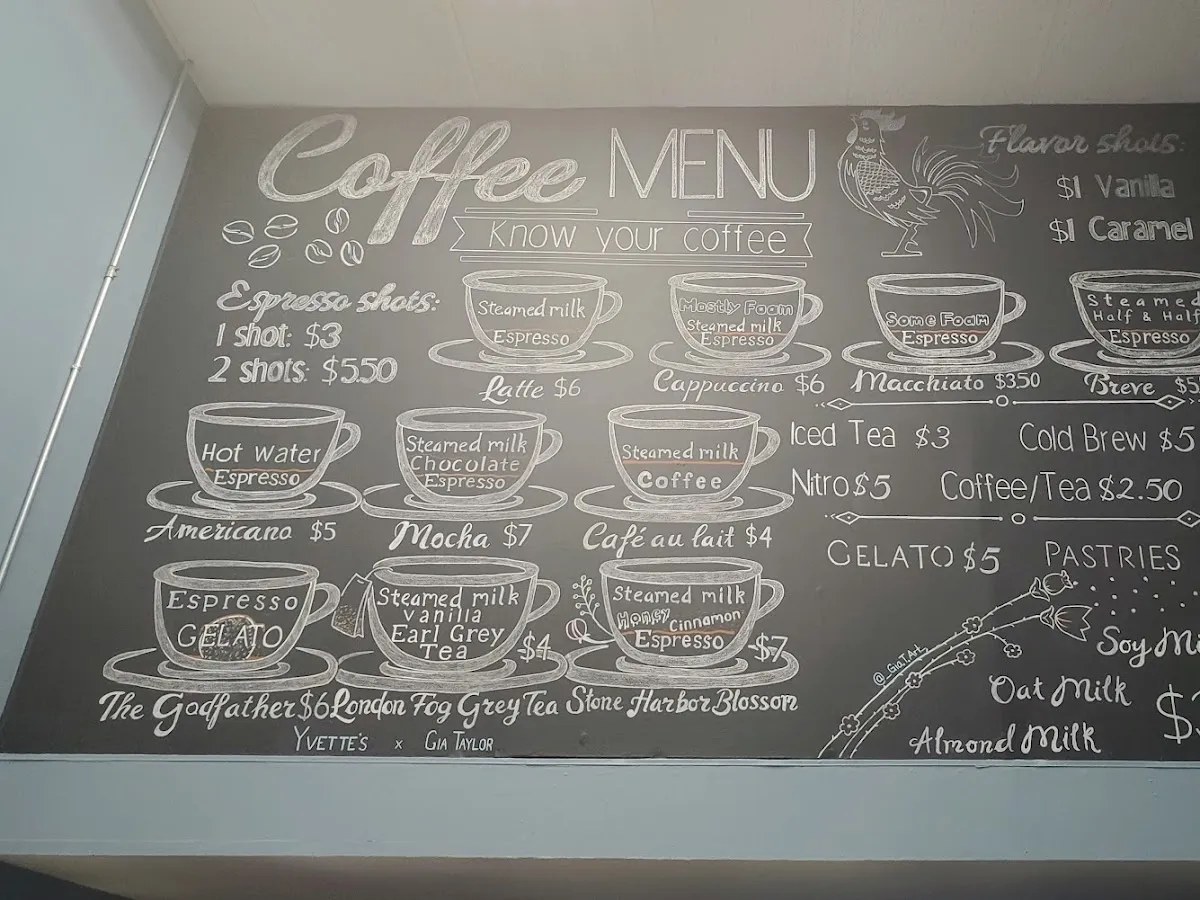 Coffee MENU
Know your coffee
Flavor shots:
$1 Vanilla
$1 Caramel
Espresso shots:
1 shot: $3
2 shots: $5.50
Steamed milk
Espresso
Latte $6
Mostly Foam
Steamed milk
Espresso
Cappuccino $6
Some Foam
Espresso
Macchiato $350
Steamed
Half & Half
Espresso
Breve $5
Hot water
Espresso
Americano $5
Steamed milk
Chocolate
Espresso
Mocha $7
Steamed milk
Coffee
Café au lait $4
Iced Tea $3 Cold Brew $5
Nitro $5 Coffee/Tea $2.50
GELATO $5 PASTRIES
Espresso
GELATO
The Godfather $6
Steamed milk
vanilla
Earl Grey
Tea
$4
London Fog Grey Tea
Steamed milk
Honey Cinnamon
Espresso
$7
Stone Harbor Blosson
@_Gia.T.Art_
Soy
Oat Milk
Almond Milk
YVETTE'S x GIA TAYLOR